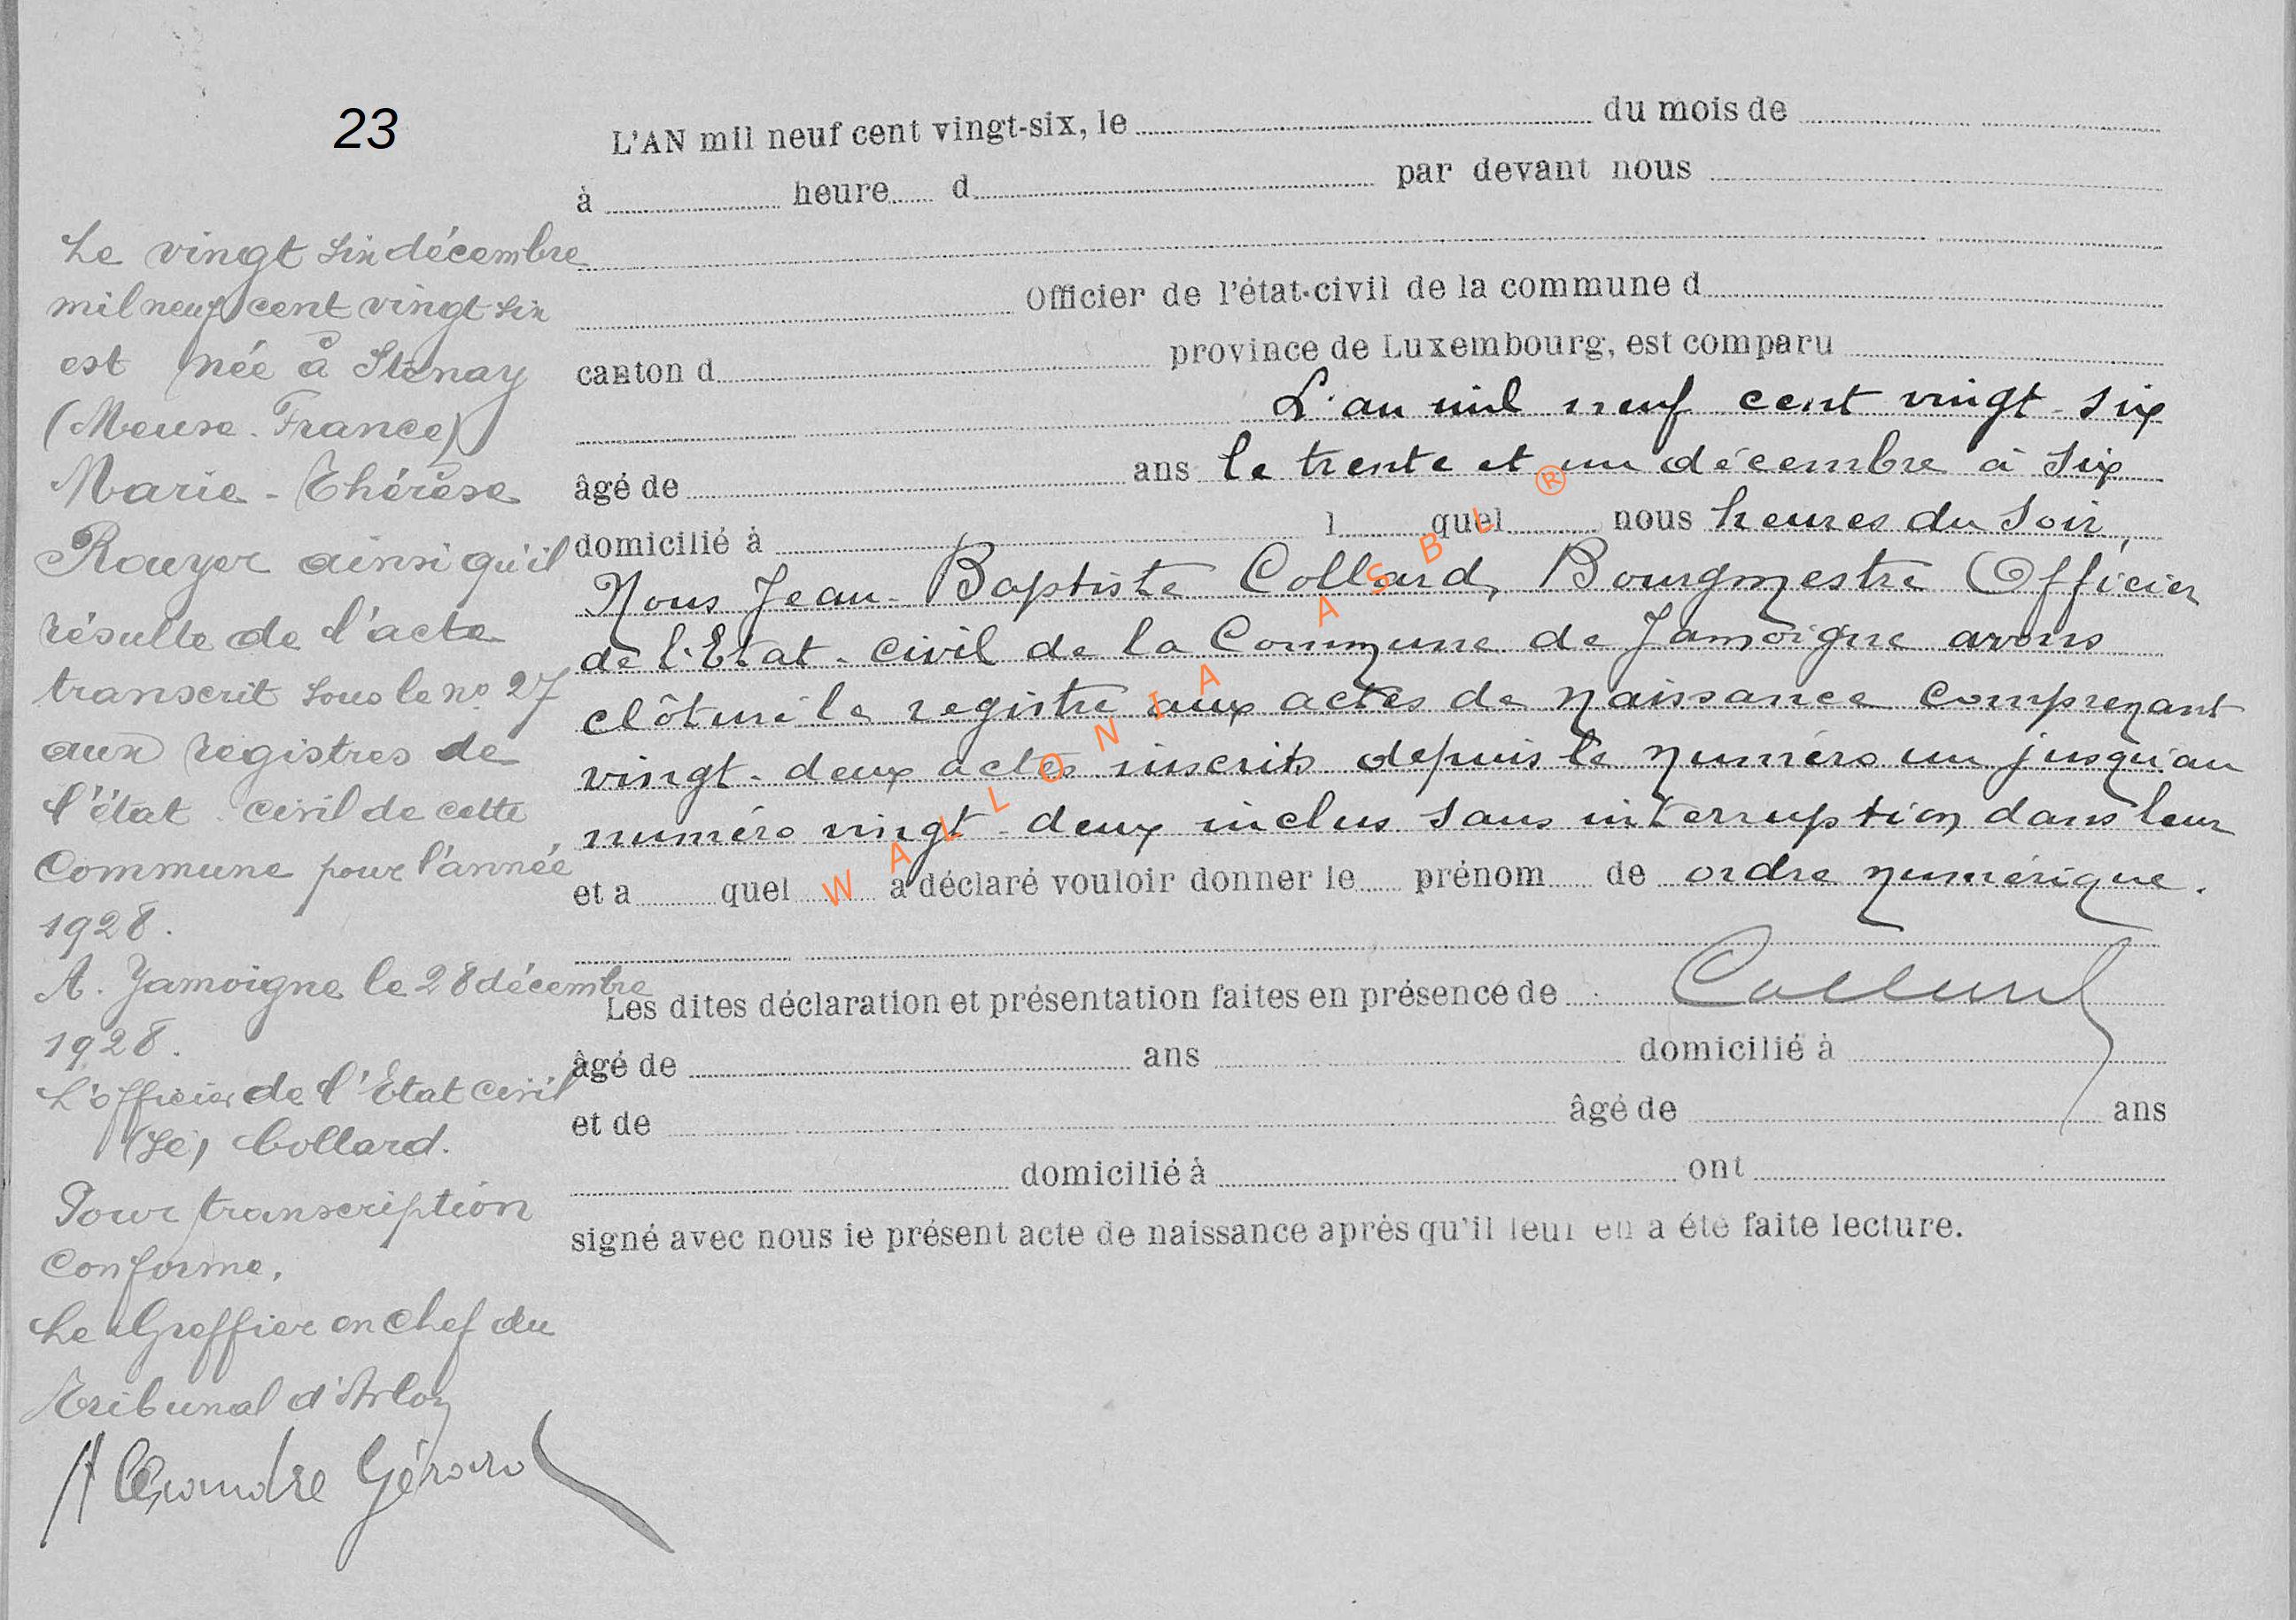 23
Le vingt six décembre
mil neuf cent vingt six
est née à Stenay
(Meuse. France)
Marie-Thérèse
Rouyer ainsi qu'il
résulte de l'acte
transcrit sous le n° 27
aux registres de
l'état civil de cette
Commune pour l'année
1928.
A. Jamoigne le 28 décembre
1928.
L'officier de l'Etat civil
(Sé) Collard.
Pour transcription
conforme,
Le Greffier en chef du
Tribunal d'Arlon
Alexandre Gérard
L'AN mil neuf cent vingt-six, le du mois de
à heure d par devant nous
Officier de l'état-civil de la commune d
canton d province de Luxembourg, est comparu
L'an mil neuf cent vingt-six
âgé de ans le trente et un décembre à six
domicilié à l quel nous heures du soir,
Nous Jean-Baptiste Collard, Bourgmestre Officier
de l'Etat-civil de la Commune de Jamoigne avons
clôturé le registre aux actes de naissance comprenant
vingt-deux actes inscrits depuis le numéro un jusqu'au
numéro vingt-deux inclus sans interruption dans leur
et a quel a déclaré vouloir donner le prénom de ordre numérique.
Les dites déclaration et présentation faites en présence de Collard
âgé de ans domicilié à
et de âgé de ans
domicilié à ont
signé avec nous le présent acte de naissance après qu'il leur en a été faite lecture.
WALLONIA ASBL ®